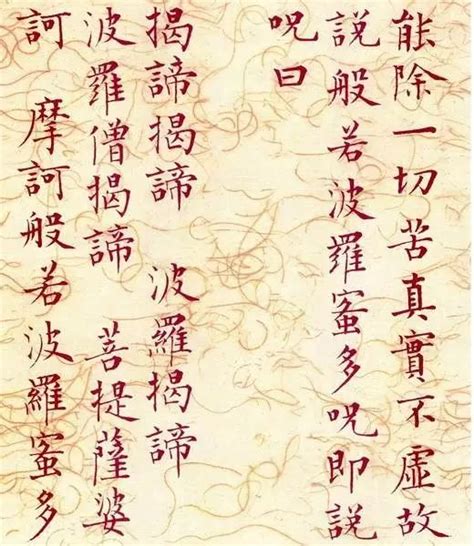 能除一切苦真實不虛故
說般若波羅蜜多咒即說
咒曰
揭諦揭諦 波羅揭諦
波羅僧揭諦 菩提薩婆
訶 摩訶般若波羅蜜多